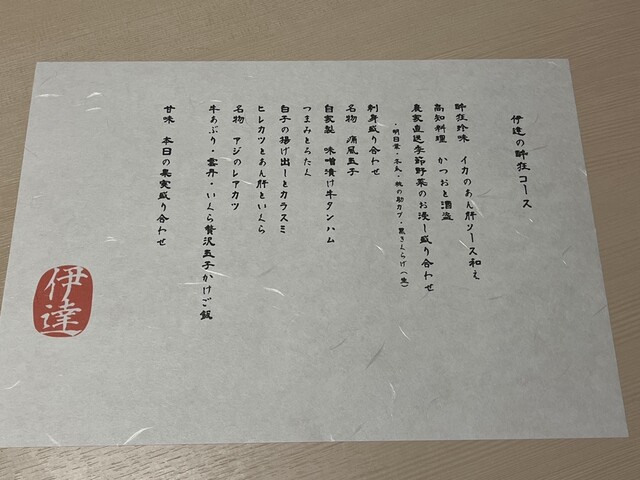 伊達の酔狂コース
酔狂珍味　イカのあん肝ソース和え
高知料理　かつおと酒盗
農家直送季節野菜のお浸し盛り合わせ
・明日葉・冬瓜・桃の助カブ・黒きくらげ（生）
刺身盛り合わせ
名物　痛風玉子
自家製　味噌漬け牛タンハム
つまみとろたく
白子の揚げ出しとカラスミ
ヒレカツとあん肝といくら
名物　アジのレアカツ
牛あぶり・雲丹・いくら贅沢玉子かけご飯
甘味　本日の果実盛り合わせ
伊達